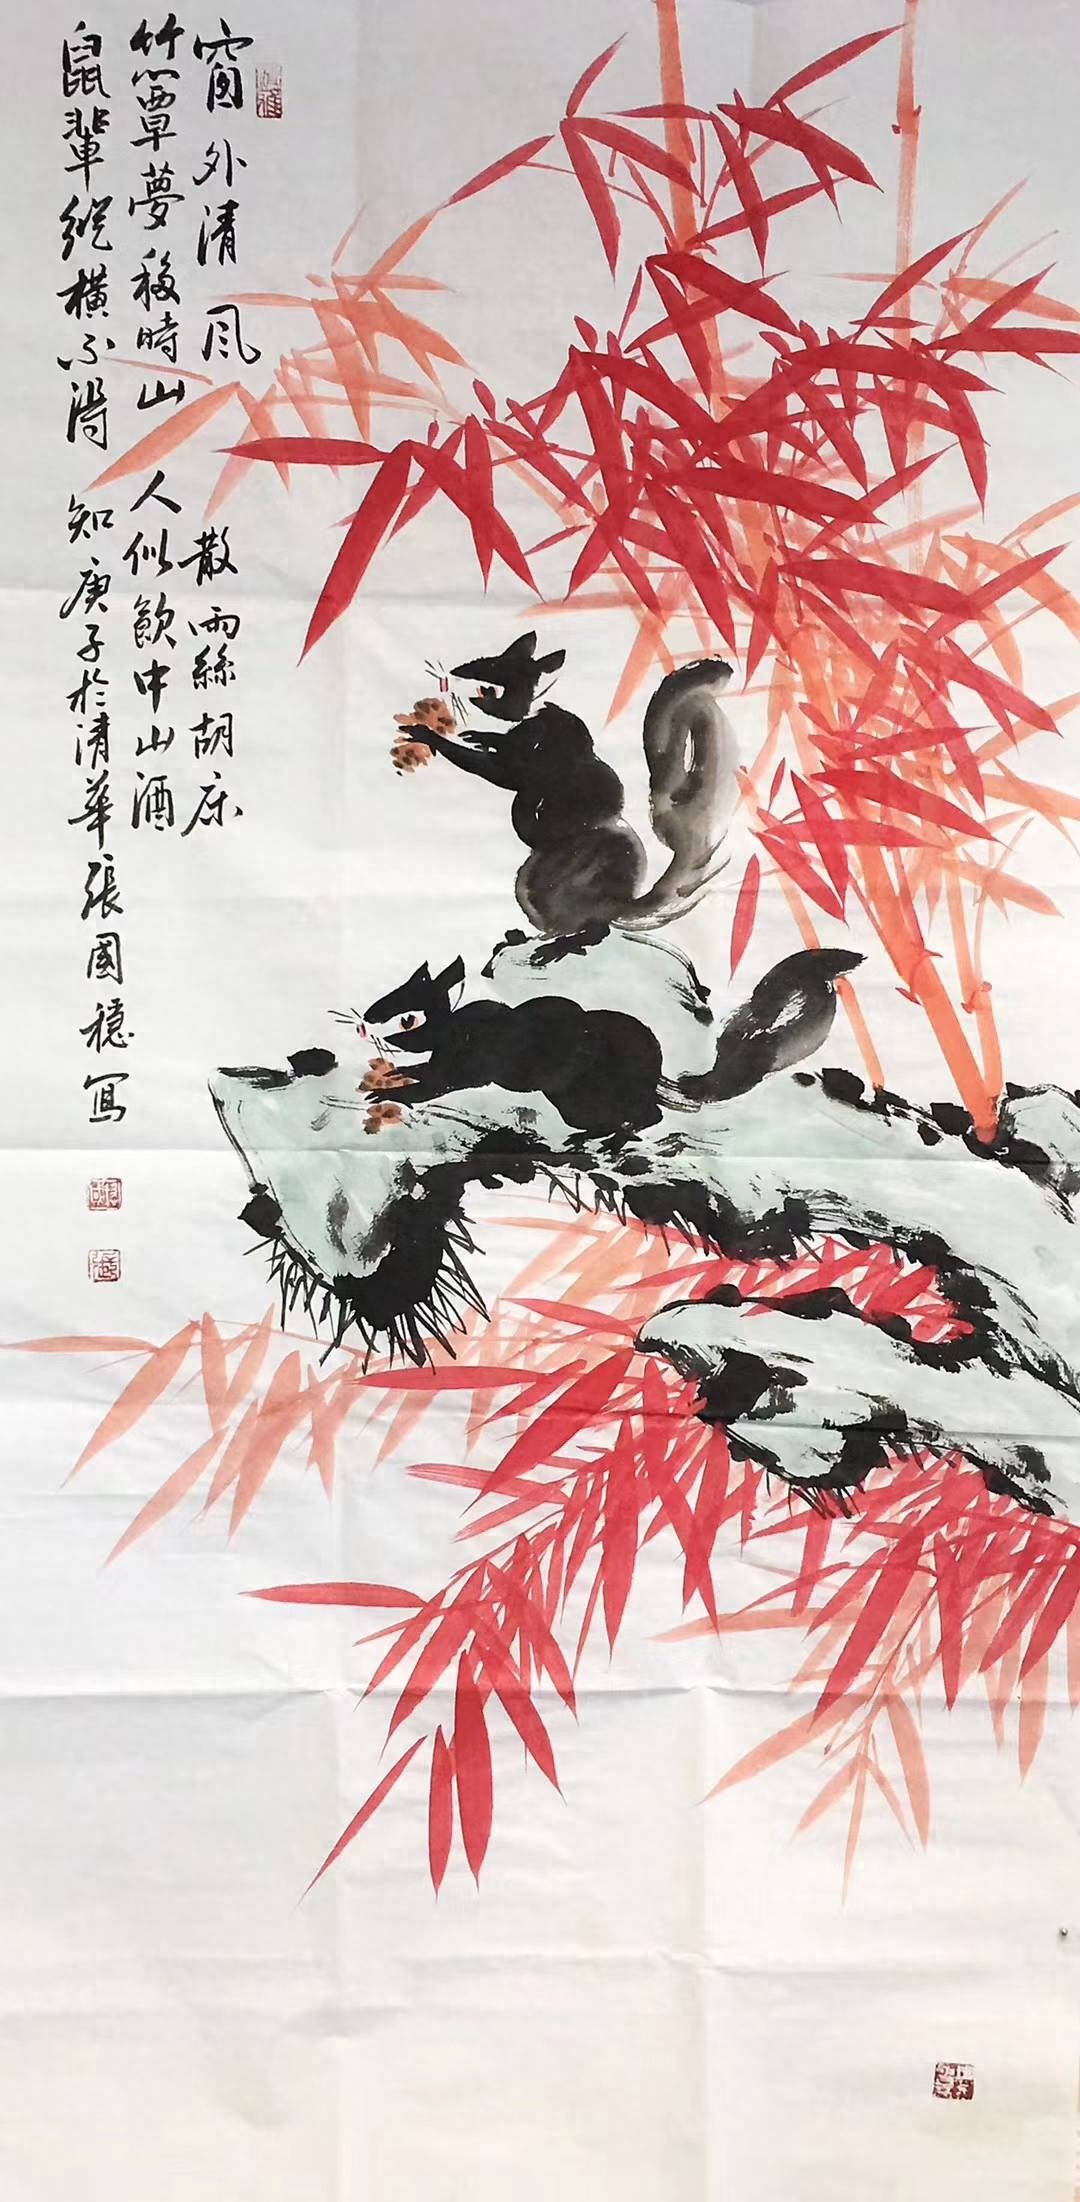 窗外清風散雨絲胡床
竹簟夢移時山人似飲中山酒
鼠輩縱橫不得知庚子於清華張國穩寫